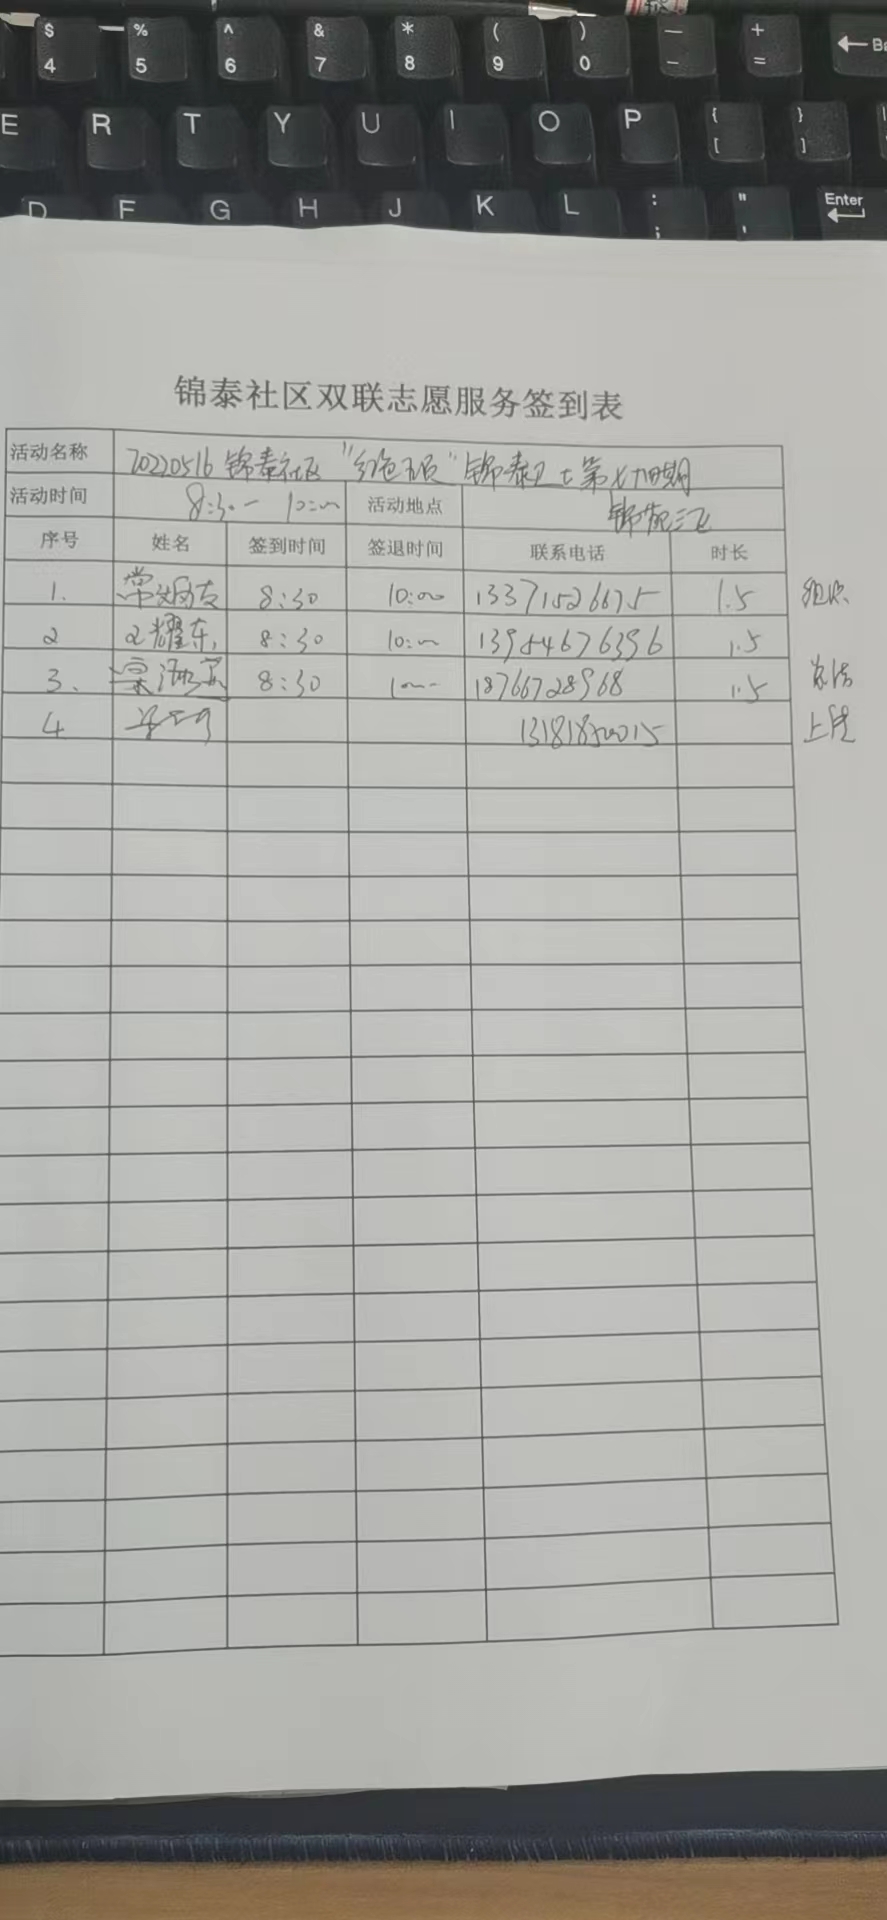 $ % ^ & * ( ) — +
4 5 6 7 8 9 0 - = Ba
E R T Y U I O P { }
[ ]
D F G H J K L : " Enter
; '
锦泰社区双联志愿服务签到表
活动名称 20220516 锦泰社区 "红色 " 锦泰卫士第 期
活动时间 8:30一 10:00 活动地点 锦苑三区
序号 姓名 签到时间 签退时间 联系电话 时长
1. 常 友 8:30 10:00 13371526675 1.5 组织
2 耀东 8:30 10:00 13954676396 1.5
3. 8:30 1000 18766728968 1.5
4 13181850015 上传